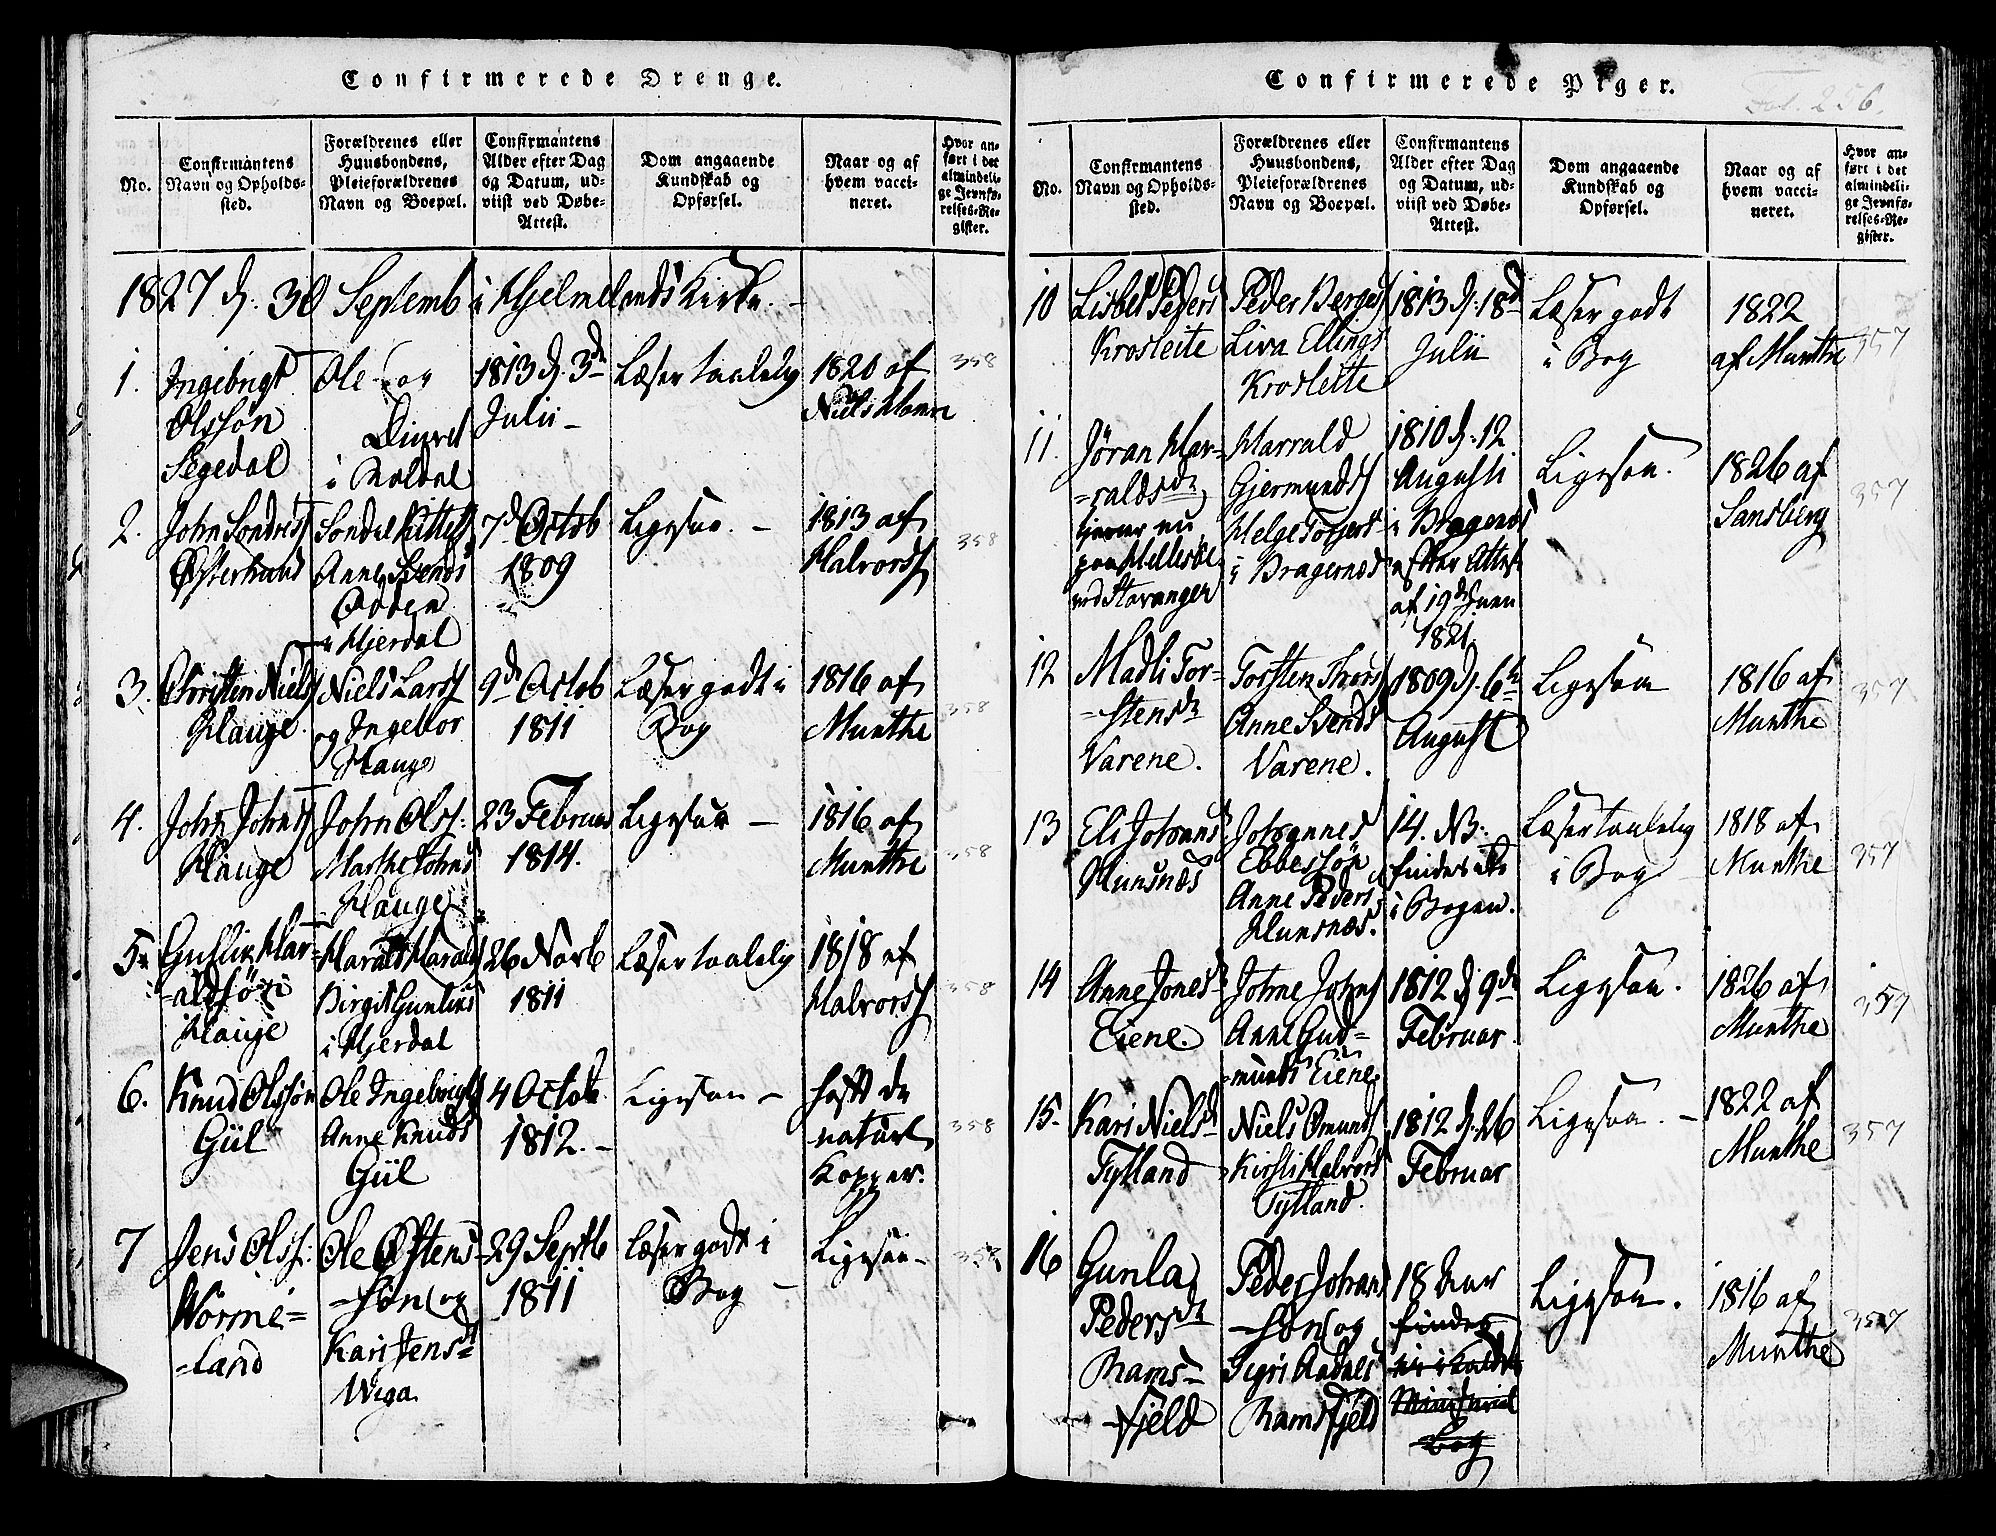 Confirmerede Drenge.
No.
Confirmantens
Navn og Opholds-
sted.
Forældrenes eller
Huusbondens,
Pleieforældrenes
Navn og Boepæl.
Confirmantens
Alder efter Dag
og Datum, ud-
viist ved Døbe-
Attest.
Dom angaaende
Kundskab og
Opførsel.
Naar og af
hvem vacci-
neret.
Hvor an-
ført i det
almindeli-
ge Jevnfø-
relses-Re-
gister.
1827 d. 30 Septemb i Hjelmelands Kirke. -
1.
Ingebrigt
Olssøn
Segedal
Ole og
i
1813 d. 3de
Julii -
Læser taalelig
1820 af
Niels
358
2.
John Sondress
Østerhuus
Sondel Kittels
Anne Svends
Odden
i Hjerdal
7de Octob
1809
Ligesaa. -
1813 af
Halvorss
358
3.
Christen Niels
Hauge
Niels Larss
og Ingebor
Hauge
9de Octob
1811
Læser godt i
Bog
1816 af
Munthe
358
4.
John Johnss
Hauge
John Olss.
Marthe Johns
Hauge
23 Februar
1814.
Ligesaa -
1816 af
Munthe
358
5.
Har=
=aldssøn
Hauge
Harald Harald
Birgit Gunliks
i Hjerdal
26 Novb
1811
Læser taalelig
1818 af
Halvorss
358
6.
Knud Olssøn
Giil
Ole Ingebrigts
Anne Knuds
Giil
4 Octob.
1812. -
Ligesaa -
hafft de
naturl
Kopper.
358
7
Jens Olss:
Worme=
=land
Ole Østens
-søn og
Karistensdt
Wiga
29 Septb
1811
læser godt i
Bog -
Ligesaa -
358
Confirmerede Piger.
Fol. 256.
No.
Confirmantens
Navn og Opholds-
sted.
Forældrenes eller
Huusbondens,
Pleieforældrenes
Navn og Boepæl.
Confirmantens
Alder efter Dag
og Datum, ud-
viist ved Døbe-
Attest.
Dom angaaende
Kundskab og
Opførsel.
Naar og af
hvem vacci-
neret.
Hvor an-
ført i det
almindeli-
ge Jevnfø-
relses-Re-
gister.
10
Lisbet Peders
Krosleite
Peder Berges
Liva Ellings
Krosleite
1813 d. 18de
Julii
Læser godt
i Bog
1822
af Munthe
357
11.
Jøran Har-
=raldsdr
tjener nu
paa Hillesøe
ved Stavanger
Harrald
Gjermunds
Helge Torgers
i Bragernæs
1810 d. 12
Augusti
i Bragernæs
efter Attest
af 19de Juni
1821.
Ligesaa.
1826 af
Sansberg
357
12
Madli Tor-
-stensdr
Varene.
Torsten Thors
Anne Svends
Varene.
1809 d. 6te
August
Ligesaa
1816 af
Munthe
357
13
Eli Johanns
Hunsnæs
Johannes
Ebbessøn
Anne Peders
Hunsnæs.
14. NB.
findes ikke
i Bogen.
Læser taalelig
i Bog
1818 af
Munthe
357
14
Anne Jonesdr
Eiene.
Johne Johns
Anne Gud=
=munds Eiene
1812 d. 9de
Februar
Ligesaa.
1826 af
Munthe
357
15.
Kari Nielsdr
Tytland
Niels Omunds
Kirsti Halvors
Tytland.
1812 d. 26
Februar
Ligesaa. -
1822 af
Munthe
357
16
Gunla
Pedersdt
Rams-
-fjeld
Peder Johan
-søn og
Sigri
Ramsfjeld
18 Aar
findes
Ministerial
Bog
Ligesaa.
1816 af
Munthe
357